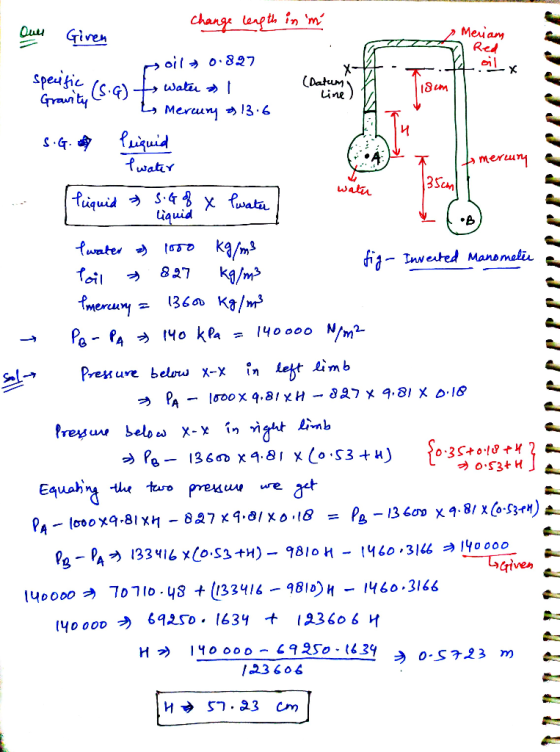 Change length in 'm'
Ques Given
Specific Gravity (S.G)
oil → 0.827
water ⇒ 1
Mercury ⇒ 13.6
S.G. ⇒ ρliquid / ρwater
ρliquid ⇒ S.G of liquid × ρwater
ρwater ⇒ 1000 kg/m³
ρoil ⇒ 827 kg/m³
ρmercury = 13600 kg/m³
→ PB - PA ⇒ 140 kPa = 140000 N/m²
Meriam Red oil
X
X
(Datum Line)
18cm
H
A
water
mercury
35cm
B
fig - Inverted Manometer
Sol → Pressure below X-X in left limb
⇒ PA - 1000 × 9.81 × H - 827 × 9.81 × 0.18
Pressure below X-X in right limb
⇒ PB - 13600 × 9.81 × (0.53 + H)
{0.35+0.18+H
⇒ 0.53+H}
Equating the two pressure we get
PA - 1000×9.81×H - 827×9.81×0.18 = PB - 13600 × 9.81×(0.53+H)
PB - PA ⇒ 133416 ×(0.53+H) - 9810 H - 1460.3166 ⇒ 140000
Given
140000 ⇒ 70710.48 + (133416 - 9810)H - 1460.3166
140000 ⇒ 69250.1634 + 123606 H
H ⇒ 140000 - 69250.1634 / 123606 ⇒ 0.5723 m
H ⇒ 57.23 cm